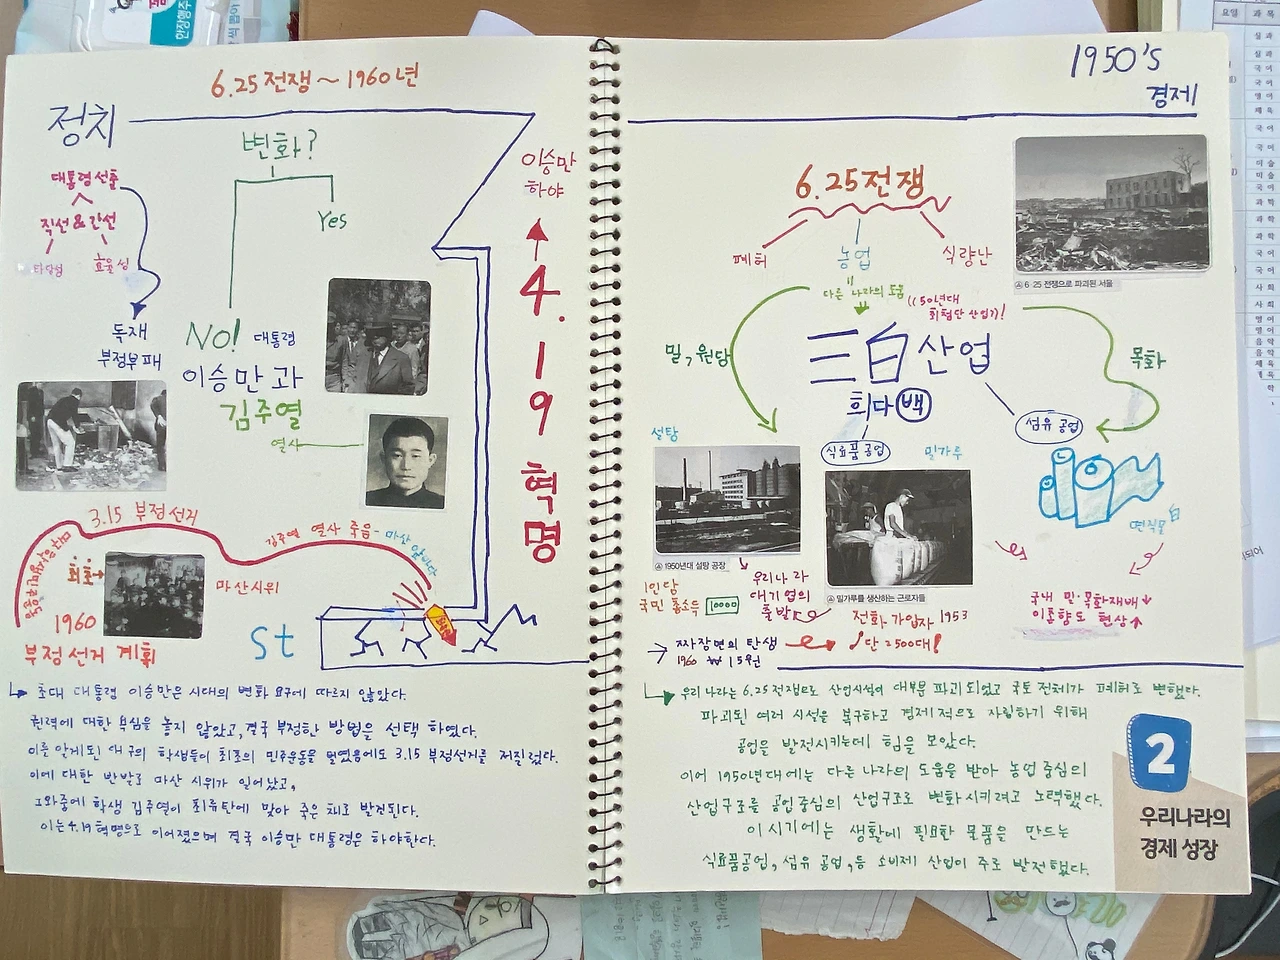 6.25전쟁 ~ 1960년
정치
변화?
Yes
대통령선출
직선 & 간선
타당성
효율성
독재
부정부패
No! 대통령
이승만 과
김주열
열사
이승만
하야
4.19 혁명
3.15 부정선거
김주열 열사 죽음 - 마산 앞바다
최초
마산시위
1960
부정선거 계획
st
초대 대통령 이승만은 시대의 변화 요구에 따르지 않았다.
권력에 대한 욕심을 놓지 않았고, 결국 부정한 방법을 선택 하였다.
이를 알게된 대구의 학생들이 최초의 민주운동을 벌였음에도 3.15 부정선거를 저질렀다.
이에 대한 반발로 마산 시위가 일어났고,
그와중에 학생 김주열이 최류탄에 맞아 죽은 채로 발견된다.
이는 4.19 혁명으로 이어졌으며 결국 이승만 대통령은 하야한다.
1950's
경제
6.25전쟁
폐허
농업
식량난
다른 나라의 도움
((50년대
최첨단 산업?)!
밀, 원당
三白산업
목화
희다 백
섬유 공업
식료품 공업
설탕
밀가루
면직물 白
6·25 전쟁으로 파괴된 서울
1950년대 설탕 공장
밀가루를 생산하는 근로자들
1인당
국민 총소득
10000
우리나라
대기업의
출발
전화 가입자 1953
단 2500대!
짜장면의 탄생
1960 ₩ 15원
국내 밀·목화재배↓
이촌향도 현상↑
우리 나라는 6.25전쟁으로 산업시설이 대부분 파괴되었고 국토 전체가 폐허로 변했다.
파괴된 여러 시설을 복구하고 경제적으로 자립하기 위해
공업을 발전시키는데 힘을 모았다.
이어 1950년대에는 다른 나라의 도움을 받아 농업 중심의
산업구조를 공업중심의 산업구조로 변화시키려고 노력했다.
이 시기에는 생활에 필요한 물품을 만드는
식료품공업, 섬유 공업, 등 소비재 산업이 주로 발전했다.
2
우리나라의
경제 성장